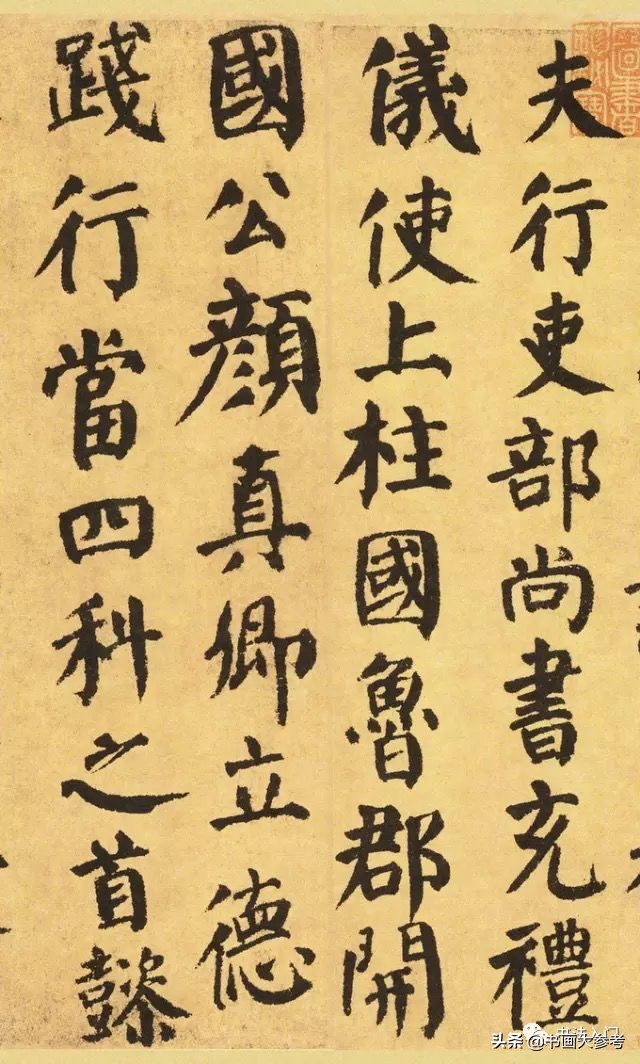 夫行吏部尚書充禮
儀使上柱國魯郡開
國公顔真卿立德
踐行當四科之首懿
头条 @书画大参考